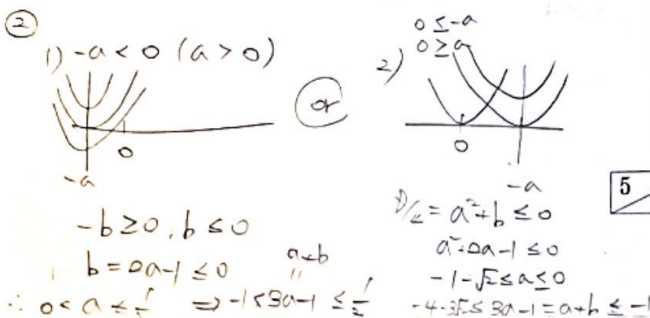 ②
1) -a < 0 (a > 0)
0
-a
-b ≥ 0, b ≤ 0
b = 2a-1 ≤ 0
a+b
"
∴ 0 < a ≤ 1/2 ⇒ -1 < 3a-1 ≤ 1/2
or
0 ≤ -a
0 ≥ a
2)
0
-a
D/4 = a²+b ≤ 0
a²+2a-1 ≤ 0
-1-√2 ≤ a ≤ 0
-4-3√2 ≤ 3a-1 = a+b ≤ -1
5